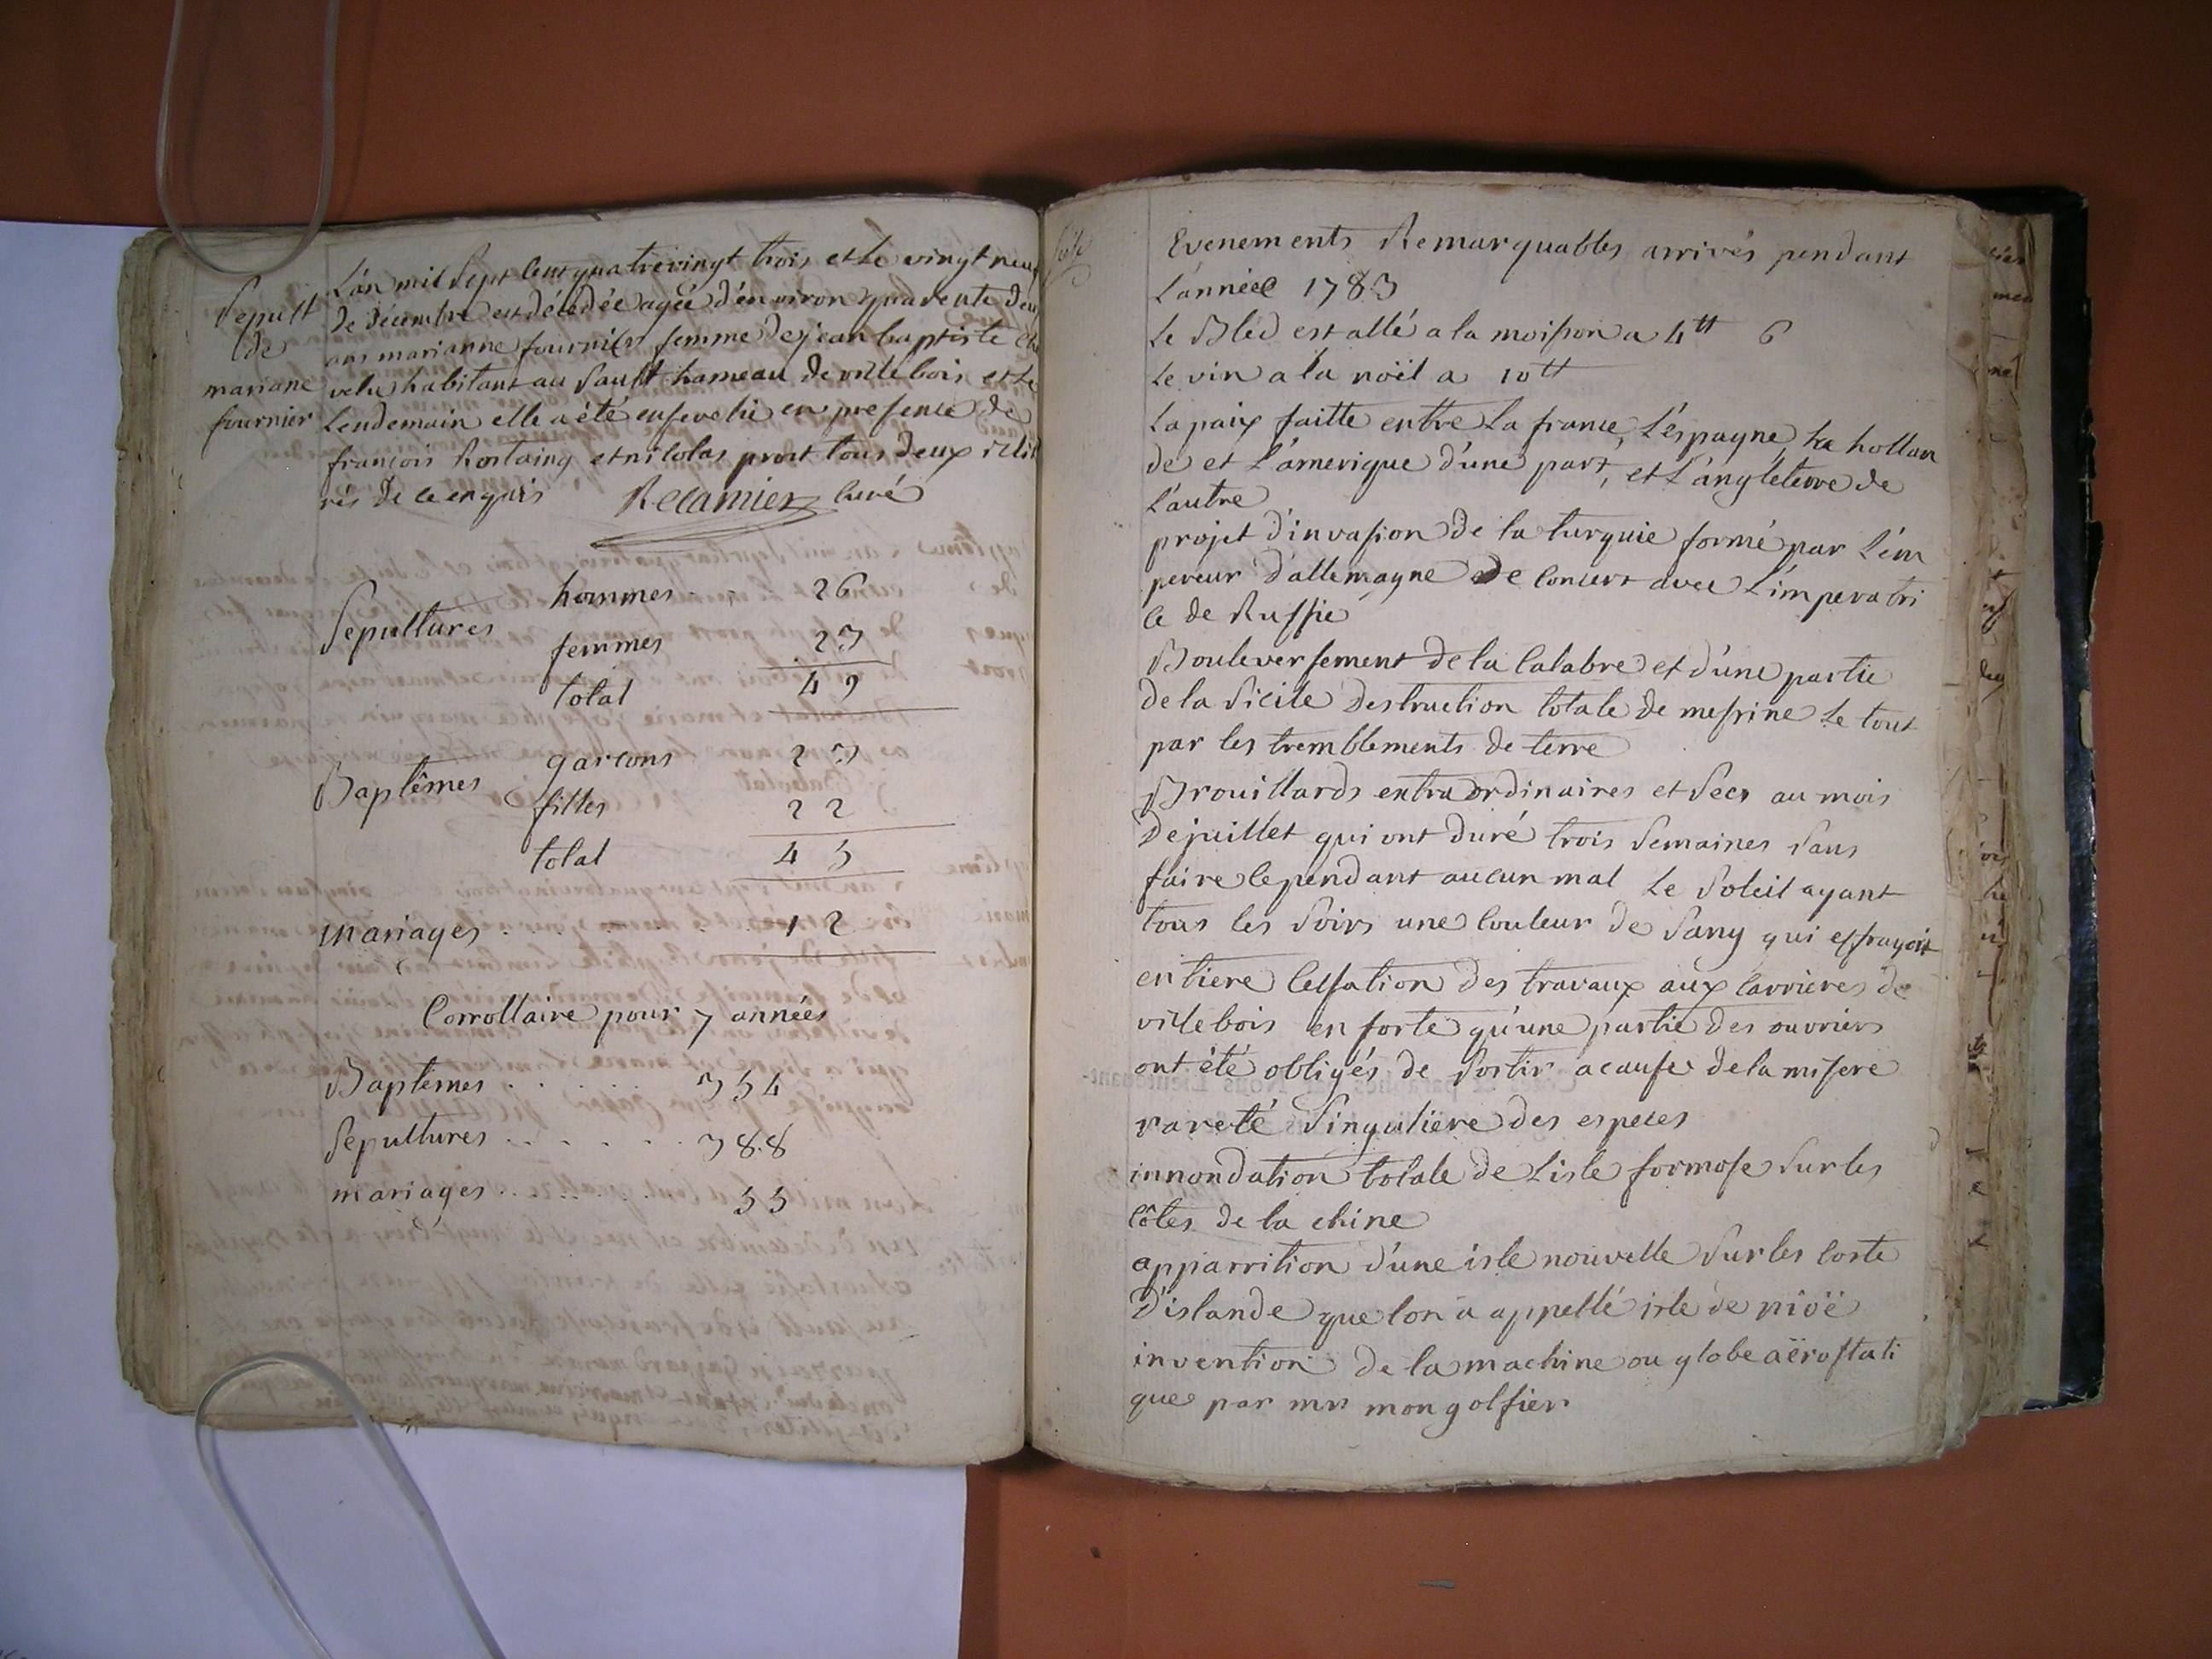 Sepult
de
mariane
fournier
L'an mil Sept cent quatrevingt trois et le vingt neuf
de decembre est décédée agée d'environ quarente deux
ans marianne fournier femme de jean baptiste che
velu habitant au Sault hameau de villebois et le
Lendemain elle a été ensevelie en presence de
françois Rostaing et nicolas prost tous deux illit
rés de ce enquis Recamier curé
Sepultures hommes 26
femmes 23
total 49
Baptêmes garcons 23
filles 22
total 45
mariages 12
Corrollaire pour 7 années
Baptêmes 354
Sepultures 388
mariages 55
Evenements Remarquables arrivés pendant
L'année 1783
Le Bled est allé a la moisson a 4tt 6
Le vin a la noël a 10tt
La paix faitte entre La france, L'éspagne, La hollan
de et L'amerique d'une part, et L'angleterre de
L'autre
projet d'invasion de la turquie formé par L'em
pereur d'allemagne de concert avec L'imperatri
ce de Russie
Bouleversement de la Calabre et d'une partie
de la Sicile Destruction totale de messine Le tout
par les tremblements de terre
Brouillards extraordinaires et Secs au mois
De juillet qui ont duré trois Semaines Sans
faire cependant aucun mal Le Soleil ayant
tous les Soirs une couleur de Sang qui effrayoit
entiere Cessation des travaux aux carrieres de
villebois en sorte qu'une partie des ouvriers
ont été obligés de Sortir a cause de la misere
rareté Singuliere des especes
innondation totale de L'isle formose Sur les
côtes de la chine
apparrition d'une isle nouvelle Sur les coste
D'islande que lon a appellé isle de nioë
invention de la machine ou globe aërostati
que par mrs mongolfier